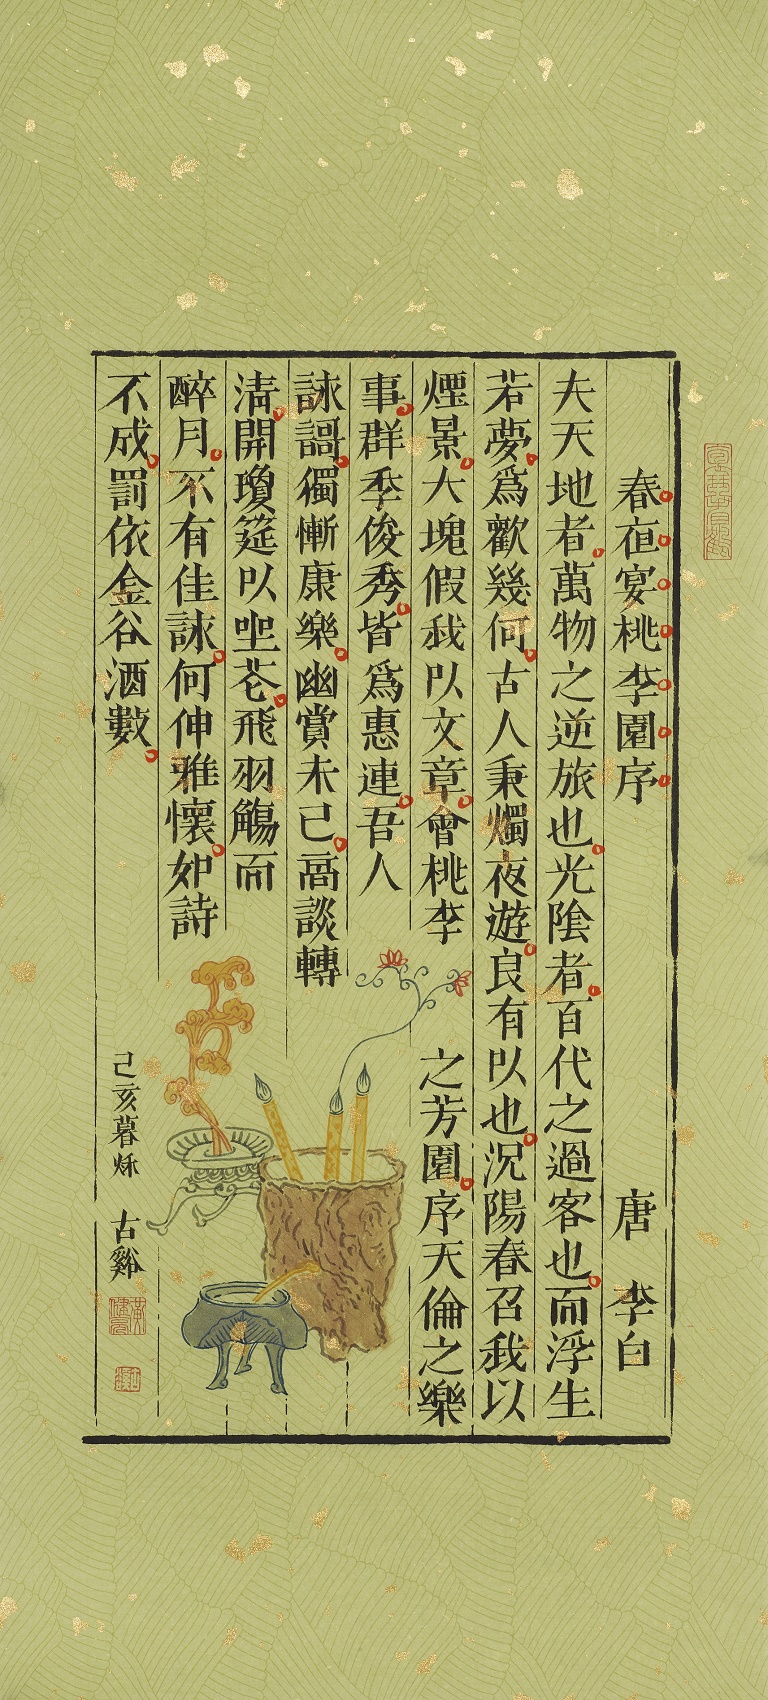 春亱宴桃李園序
唐 李白
夫天地者萬物之逆旅也光陰者百代之過客也而浮生
若夢爲歡幾何古人秉燭夜遊良有以也況陽春召我以
煙景大塊假我以文章會桃李之芳園序天倫之樂
事群季俊秀皆爲惠連吾人
詠謌獨慚康樂幽賞未已高談轉
清開瓊筵以坐花飛羽觴而
醉月不有佳詠何伸雅懷如詩
不成罰依金谷酒數
己亥暮秌 古谿